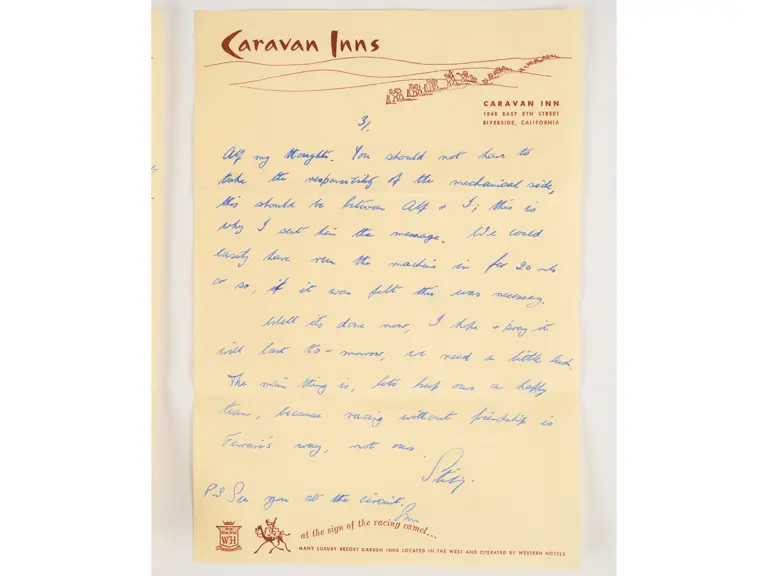 Caravan Inns
CARAVAN INN
1848 EAST 8TH STREET
RIVERSIDE, CALIFORNIA
3/.
Alf my thoughts. You should not have to
take the responsibility of the mechanical side,
this should be between Alf & I; this is
why I sent him the message. We could
easily have run the machine in for 20 mls
or so, if it was felt this was necessary.
Well its done now, I hope & pray it
will last to-morrow, we need a little luck.
The main thing is, lets keep ours a happy
team, because racing without friendship is
Ferrari's way, not ours.
P.S See you at the circuit.
WH
at the sign of the racing camel...
MANY LUXURY RESORT GARDEN INNS LOCATED IN THE WEST AND OPERATED BY WESTERN HOTELS